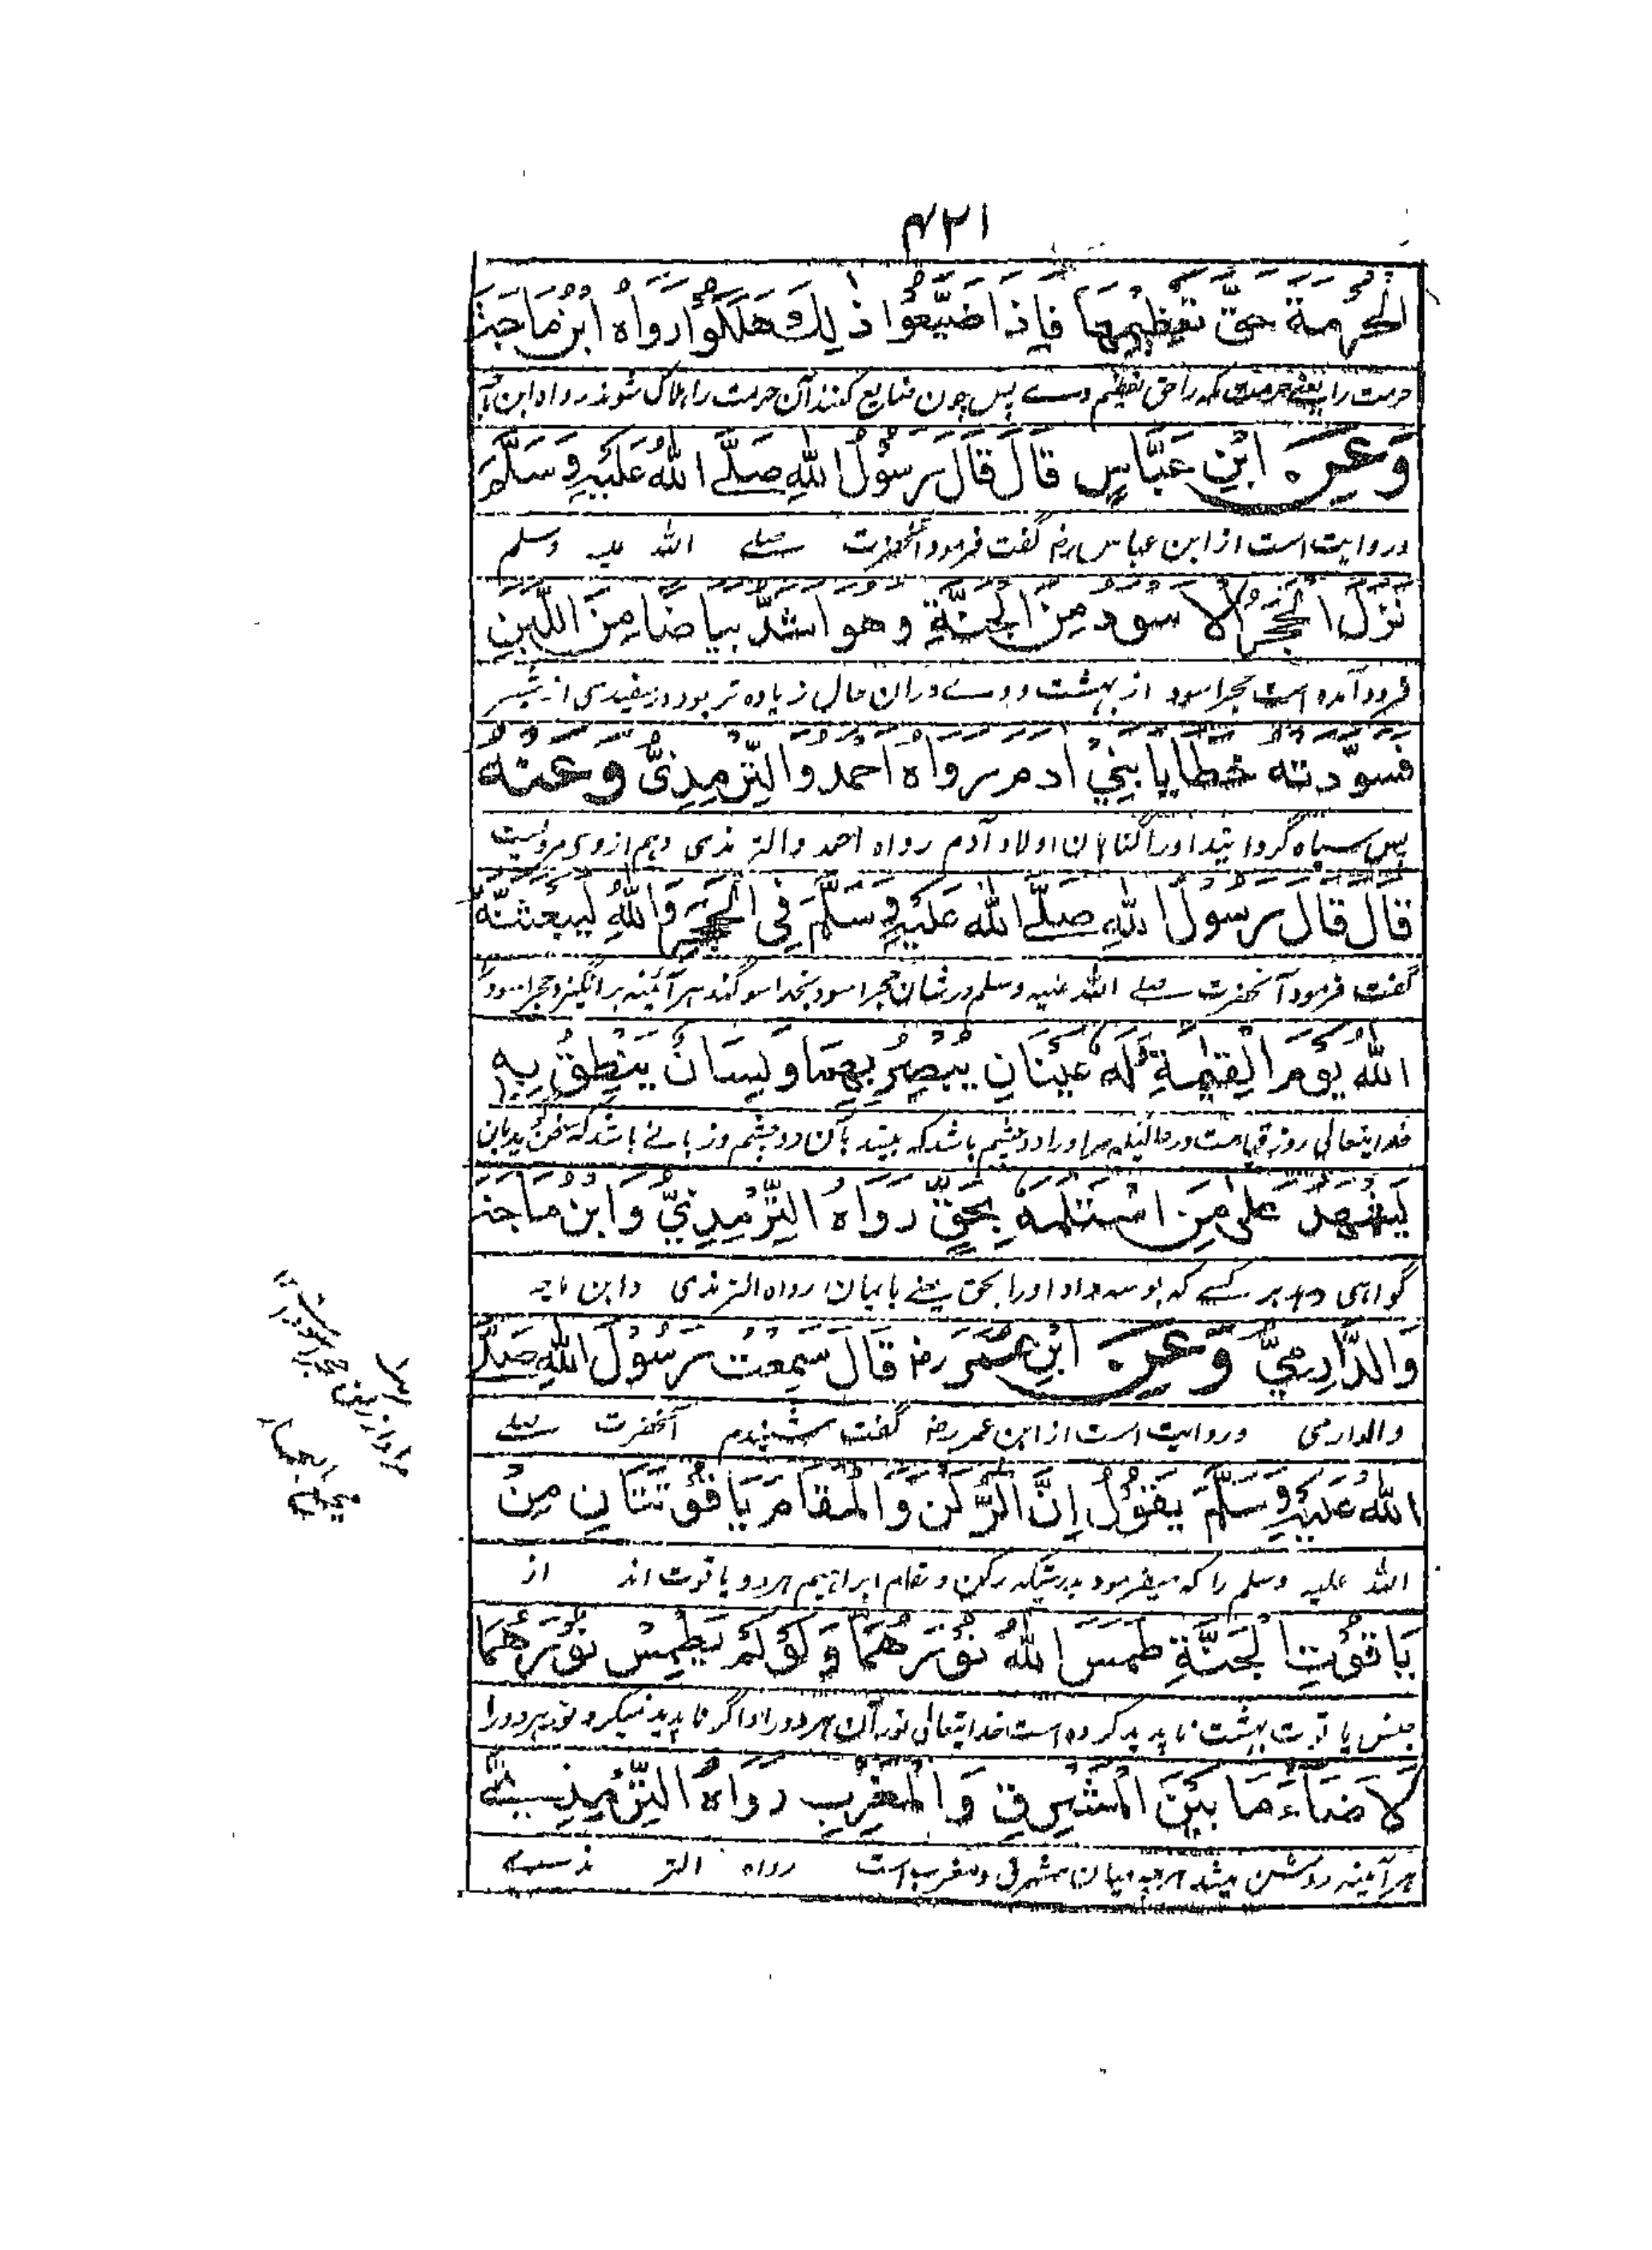 ۴۲۱
الْحُرْمَةَ حَقَّ تَعْظِيْمِهَا فَاِذَا ضَيَّعُوْا ذٰلِكَ هَلَكُوْا رَوَاهُ ابْنُ مَاجَةَ
حرمت را یعنے حرمت مکہ را حق تعظیم وے پس چون ضایع کنند آن حرمت را ہلاک شوند رواہ ابن
وَعَنِ ابْنِ عَبَّاسٍ قَالَ قَالَ رَسُوْلُ اللهِ صَلَّے اللهُ عَلَيْهِ وَسَلَّمَ
و روایت است از ابن عباس رضہ گفت فرمود آنحضرت صلے اللہ علیہ وسلم
نَزَلَ الْحَجَرُ الْاَسْوَدُ مِنَ الْجَنَّةِ وَهُوَ اَشَدُّ بَيَاضًا مِنَ اللَّبَنِ
فرود آمده است حجر اسود از بہشت و وے در ان حال زیاده تر بود در سفیدی از شیر
فَسَوَّدَتْهُ خَطَايَا بَنِيْ اٰدَمَ رَوَاهُ اَحْمَدُ وَالتِّرْمِذِيُّ وَعَنْهُ
پس سیاه گردانید او را گناہان اولاد آدم رواه احمد والترمذی وہم از وی مرویست
قَالَ قَالَ رَسُوْلُ اللهِ صَلَّے اللهُ عَلَيْهِ وَسَلَّمَ فِى الْحَجَرِ وَاللهِ لَيَبْعَثَنَّهُ
گفت فرمود آنحضرت صلے اللہ علیہ وسلم در شان حجر اسود بخدا سوگند ہر آئینہ بر انگیزد حجر اسود را
اللهُ يَوْمَ الْقِيٰمَةِ لَهُ عَيْنَانِ يُبْصِرُ بِهِمَا وَلِسَانٌ يَنْطِقُ بِهِ
خدایتعالی روز قیامت در حالیکہ مر او را دو چشم باشد کہ بیند بآن دو چشم و زبانے باشد کہ سخن گوید بان
يَشْهَدُ عَلٰى مَنِ اسْتَلَمَهُ بِحَقٍّ رَوَاهُ التِّرْمِذِيُّ وَابْنُ مَاجَةَ
گواہی دہد بر کسے کہ بوسہ داد او را بحق یعنے بایمان رواه الترمذی وابن ماجہ
وَالدَّارِمِيُّ وَعَنِ ابْنِ عُمَرَ رضہ قَالَ سَمِعْتُ رَسُوْلَ اللهِ صَلَّے
والدارمی و روایت است از ابن عمر رضہ گفت شنیدم آنحضرت صلے
اللهُ عَلَيْهِ وَسَلَّمَ يَقُوْلُ اِنَّ الرُّكْنَ وَالْمَقَامَ يَاقُوْتَتَانِ مِنْ
اللہ علیہ وسلم را کہ میفرمود بدرستیکہ رکن و مقام ابراہیم ہر دو یاقوت اند از
يَاقُوْتِ الْجَنَّةِ طَمَسَ اللهُ نُوْرَهُمَا وَلَوْ لَمْ يَطْمِسْ نُوْرَهُمَا
جنس یاقوت بہشت ناپدید کرده است خدایتعالی نور آن ہر دو را و اگر ناپدید نمیکرد نور ہر دو را
لَاَضَاءَ مَا بَيْنَ الْمَشْرِقِ وَالْمَغْرِبِ رَوَاهُ التِّرْمِذِيُّ
ہر آئینہ روشن میشد ہر چہ میان مشرق و مغرب است رواه الترمذی